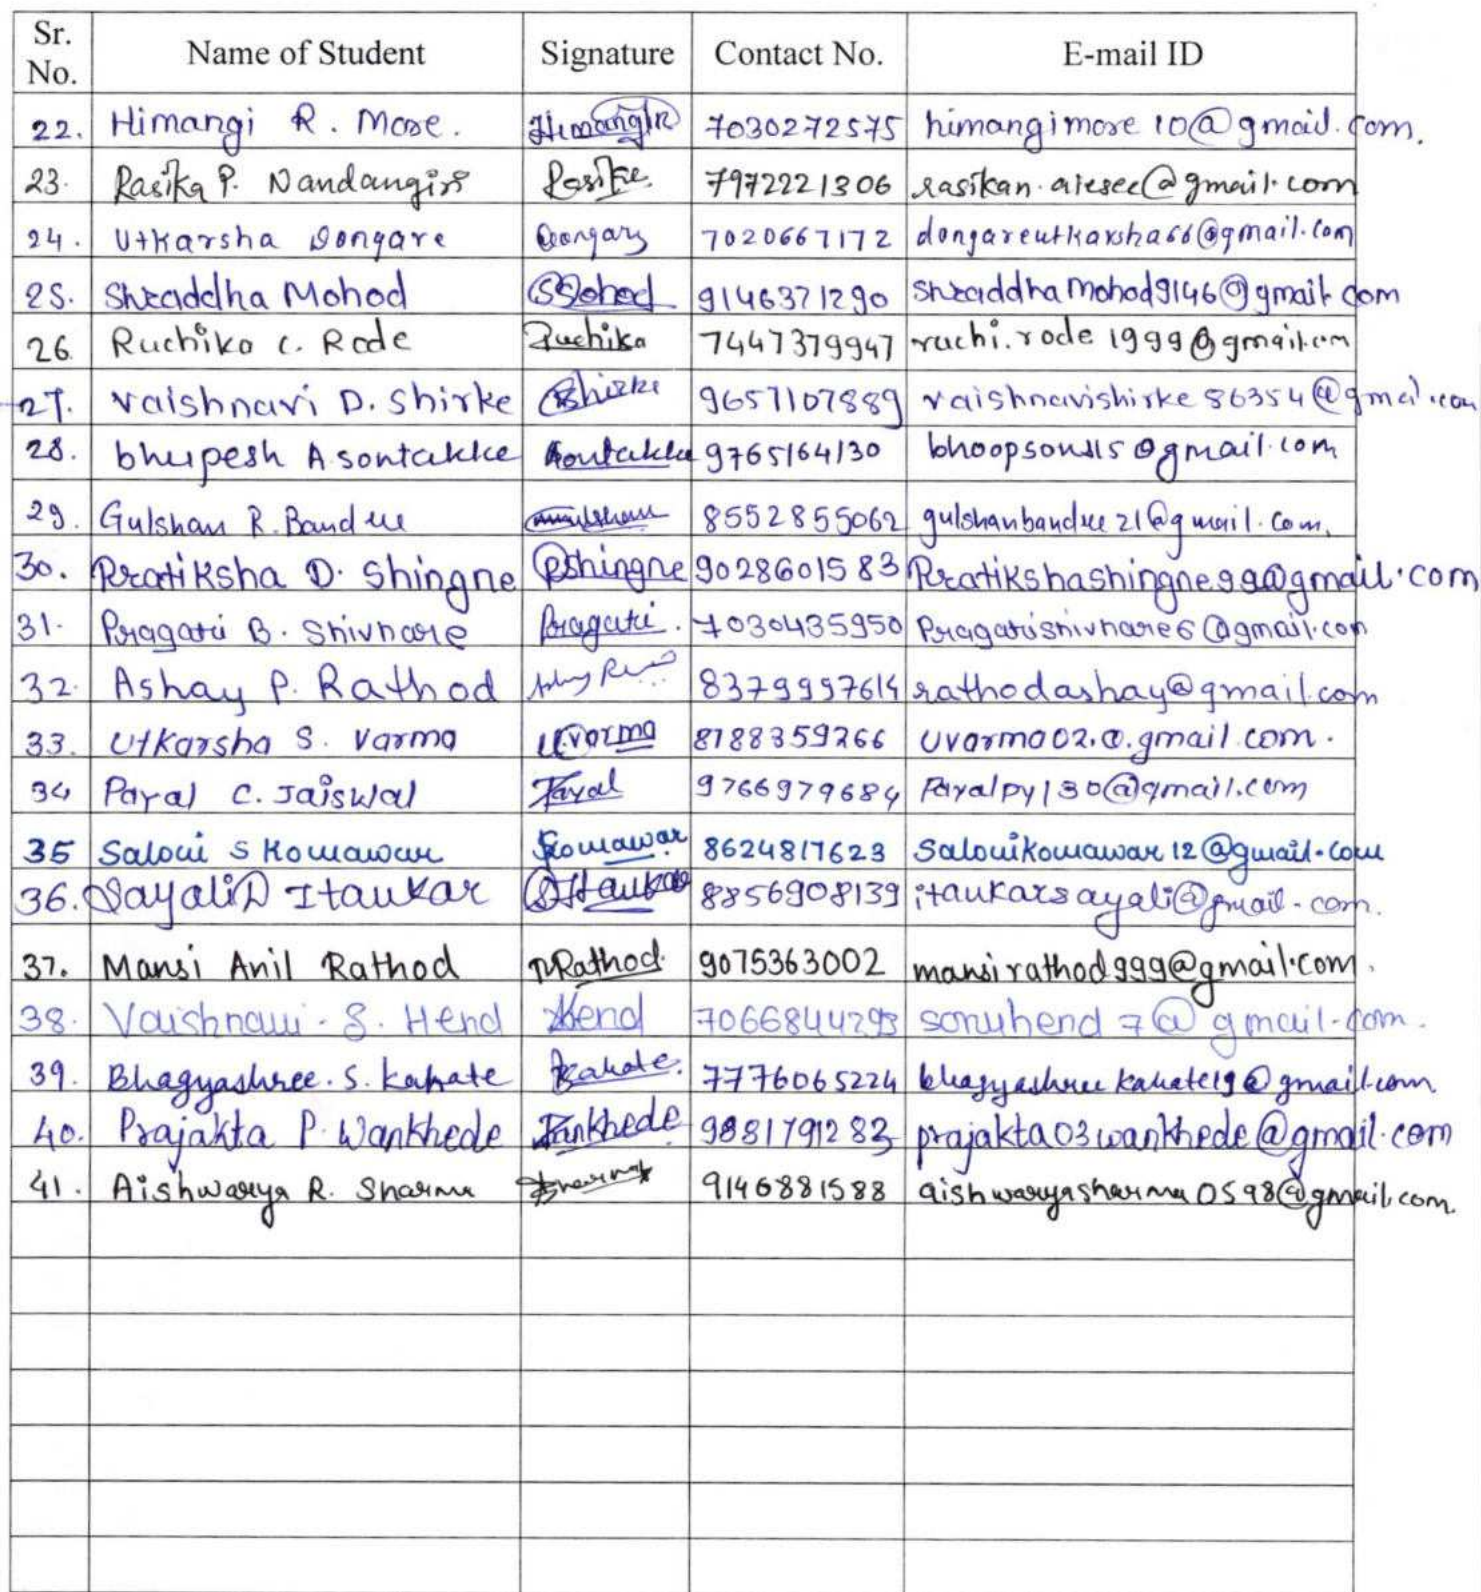 Sr. No. Name of Student Signature Contact No. E-mail ID
22. Himangi R. More. Himangi 7030272575 himangimore10@gmail.com.
23. Rasika P. Nandangiri Rasika 7972221306 rasikan.aiesec@gmail.com
24. Utkarsha Dongare Dongare 7020667172 dongareutkarsha66@gmail.com
25. Shraddha Mohod SMohod 9146371290 shraddhamohod9146@gmail.com
26. Ruchika C. Rode Ruchika 7447379947 ruchi.rode1999@gmail.com
27. Vaishnavi D. Shirke Shirke 9657107889 vaishnavishirke86354@gmail.com
28. bhupesh A sontakke Sontakke 9765164130 @gmail.com
29. Gulshan R. Gulshan 8552855062 21@gmail.com.
30. Pratiksha D. Shingne Pshingne 9028601583 Pratikshashingne99@gmail.com
31. Pragati B. Shivhare Pragati. 7030435950 Pragatishivhare6@gmail.com
32. Ashay P. Rathod 8379997614 rathodashay@gmail.com
33. Utkarsha S. Varma UVarma 8788359266 uvarma02.@.gmail.com.
34 Payal C. Jaiswal Payal 9766979684 Payalpy130@gmail.com
35 Saloni S Komawar Komawar 8624817623 Salonikomawar12@gmail.com
36. Sayali D Itankar SItankar 8856908139 itankarsayali@gmail.com.
37. Mansi Anil Rathod MRathod 9075363002 mansirathod999@gmail.com.
38. Vaishnavi. S. Hend Hend 7066844293 sonuhend7@gmail.com.
39. Bhagyashree. S. Kahate Kahate. 7776065224 bhagyashreekahate19@gmail.com
40. Prajakta P. Wankhede Wankhede 9881791283 prajakta03wankhede@gmail.com
41. Aishwarya R. Sharma Sharma 9146881588 aishwaryasharma0598@gmail.com.